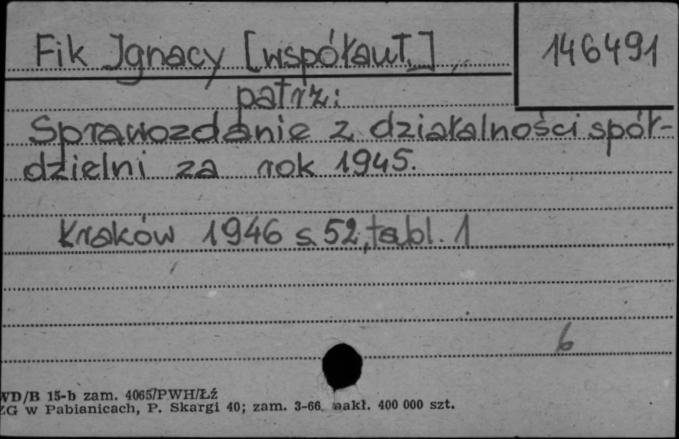 Fik Ignacy [współaut.] 146491
patrz:
Sprawozdanie z działalności spół-
dzielni za rok 1945.
Kraków 1946 s. 52, tabl. 1
6
WD/B 15-b zam. 4065/PWH/Łź
ZG w Pabianicach, P. Skargi 40; zam. 3-66 nakł. 400 000 szt.